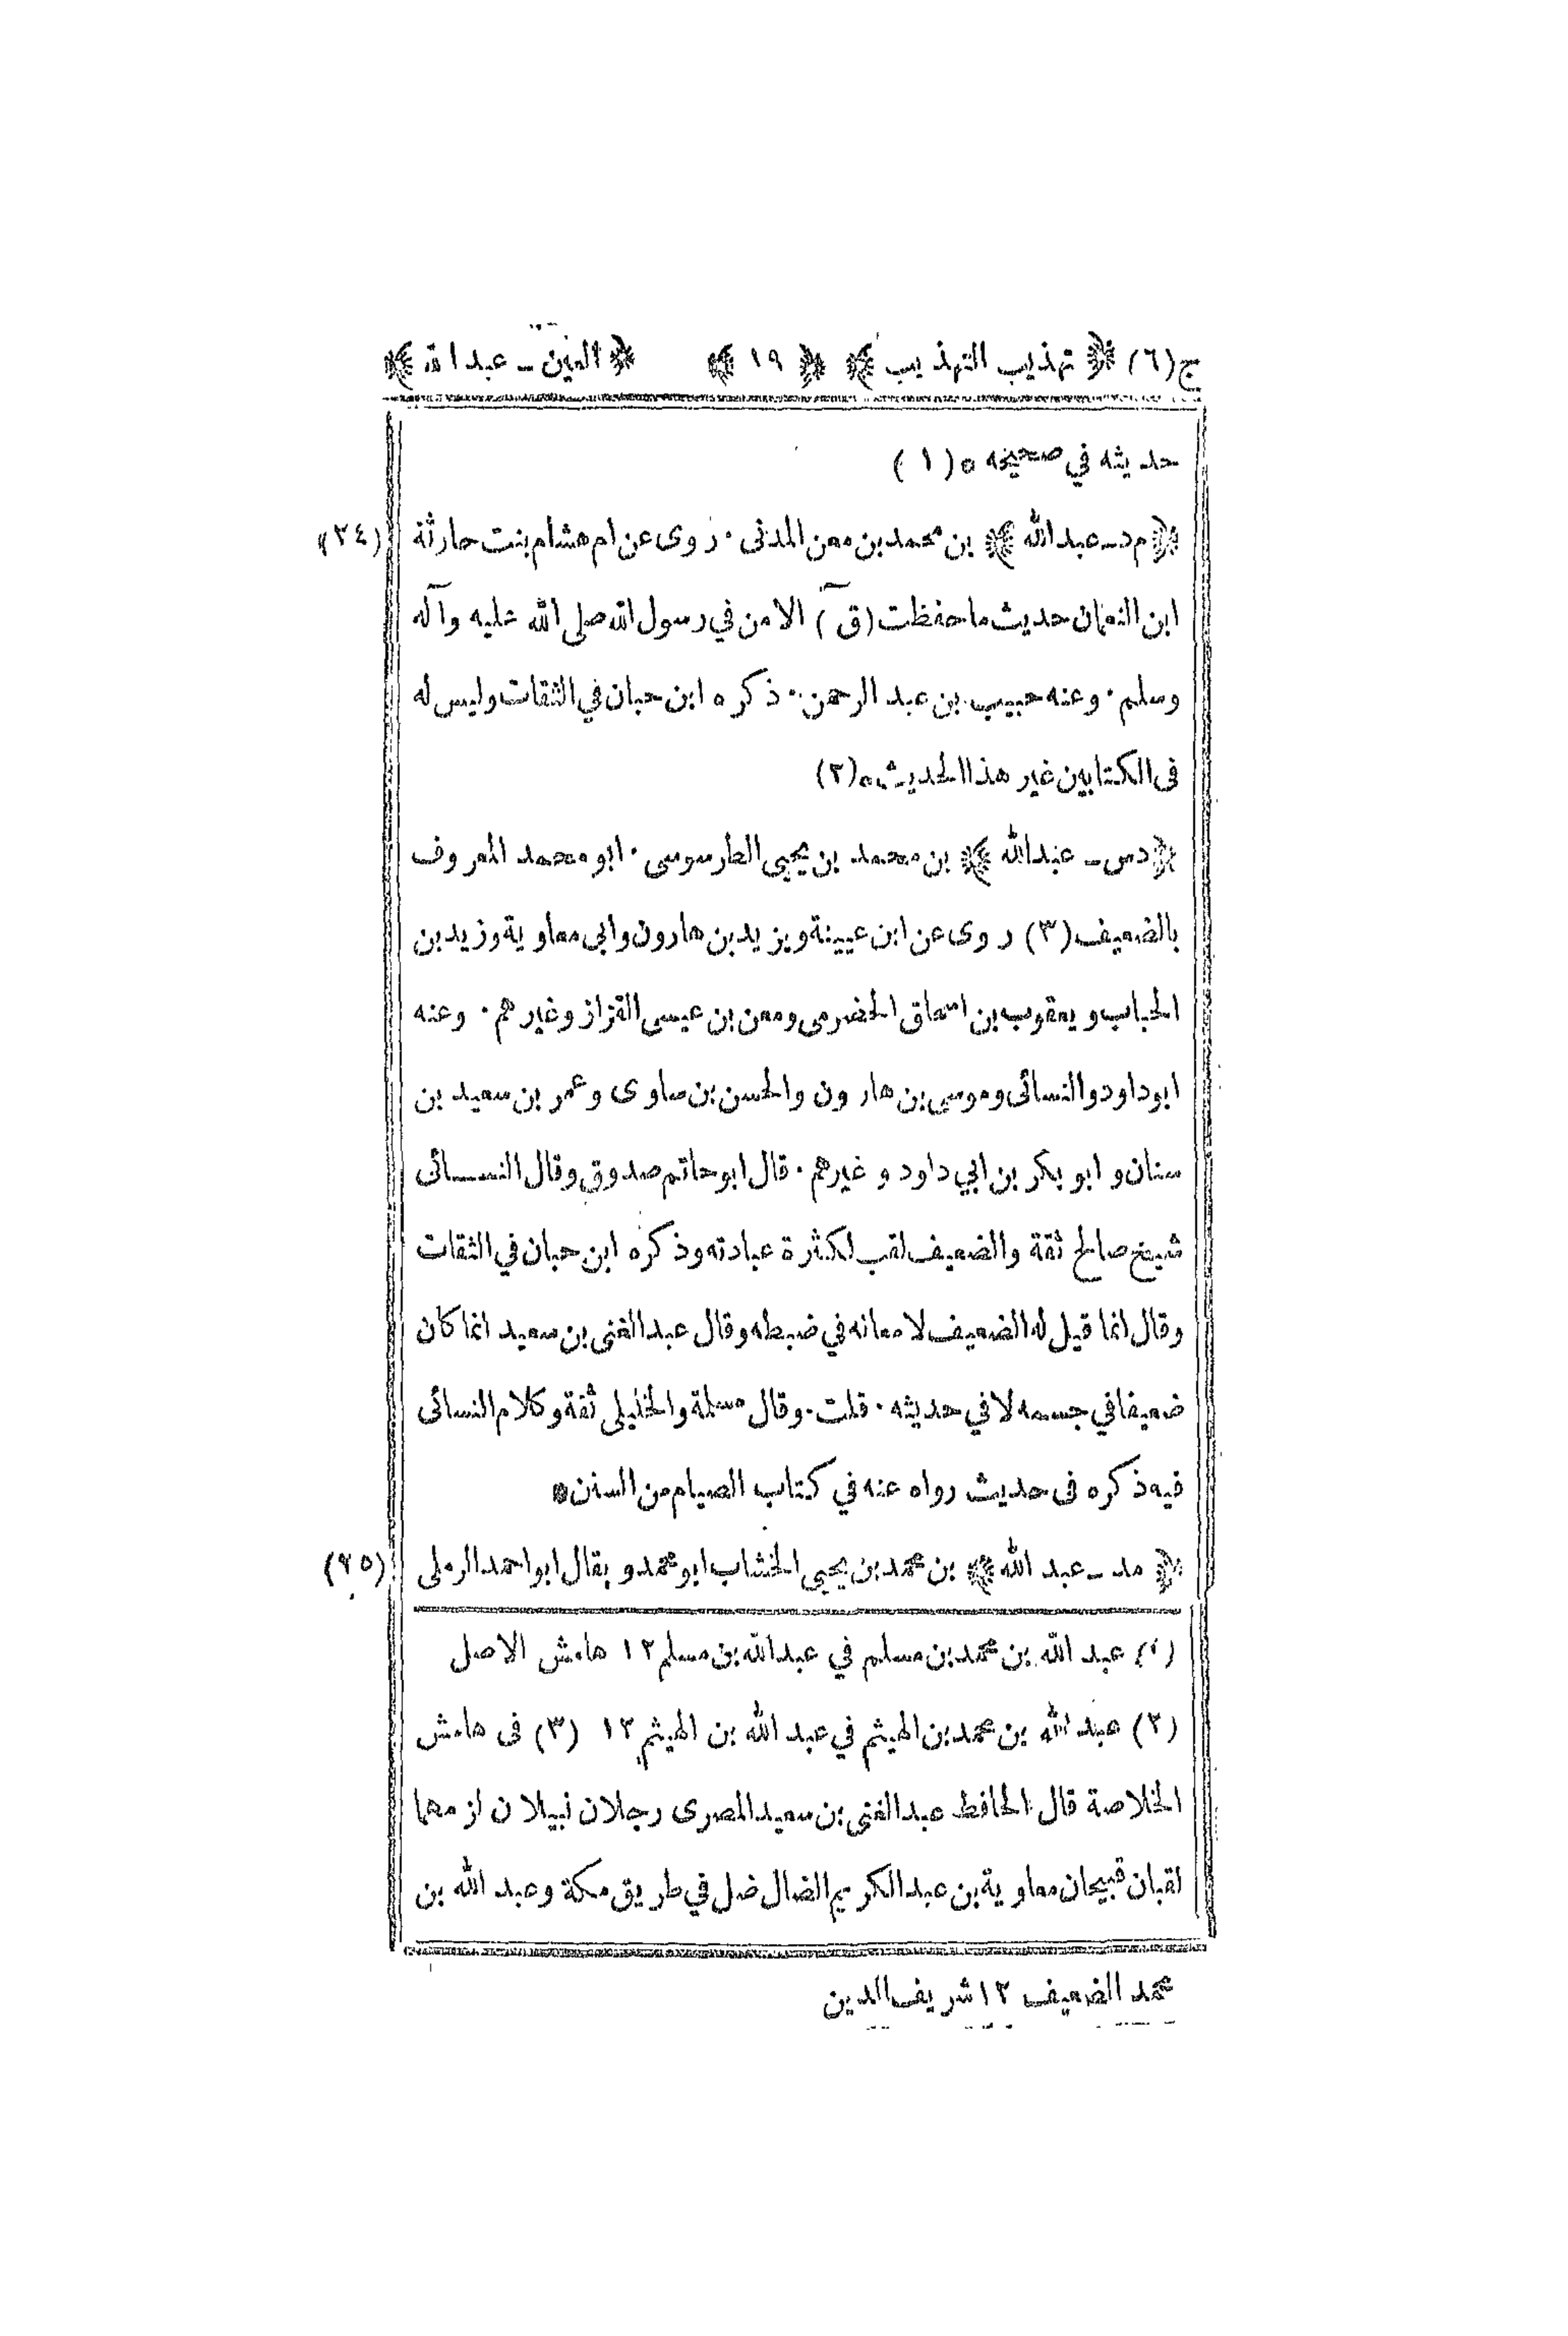 ج(٦) ﴿ تهذيب التهذيب ﴾ ﴿ ١٩ ﴾ ﴿ العين ـ عبد الله ﴾
حديثه في صحيحه ٥ (١)
﴿ م د ـ عبد الله ﴾ بن محمد بن معن المدنى . روى عن ام هشام بنت حارثة (٢٤)
ابن النعمان حديث ما حفظت (ق) الا من في رسول الله صلى الله عليه وآله
وسلم . وعنه حبيب بن عبد الرحمن . ذكره ابن حبان في الثقات وليس له
فى الكتابين غير هذا الحديث ٥ (٢)
﴿ د س ـ عبد الله ﴾ بن محمد بن يحيى الطرسوسى . ابو محمد المعروف
بالضعيف (٣) روى عن ابن عيينة ويزيد بن هارون وابى معاوية وزيد بن
الحباب ويعقوب بن اسحاق الحضرمى ومعن بن عيسى القزاز وغيرهم . وعنه
ابو داود والنسائى وموسى بن هارون والحسن بن صاوى وعمر بن سعيد بن
سنان وابو بكر بن ابي داود وغيرهم . قال ابو حاتم صدوق وقال النسائى
شيخ صالح ثقة والضعيف لقب لكثرة عبادته وذكره ابن حبان في الثقات
وقال انما قيل له الضعيف لامعانه في ضبطه وقال عبد الغنى بن سعيد انما كان
ضعيفا في جسمه لا في حديثه . قلت . وقال مسلمة والخليلى ثقة وكلام النسائى
فيه ذكره فى حديث رواه عنه في كتاب الصيام من السنن ٥
﴿ مد ـ عبد الله ﴾ بن محمد بن يحيى الخشاب ابو محمد ويقال ابو احمد الرملى (٢٥)
(١) عبد الله بن محمد بن مسلم في عبد الله بن مسلم ١٢ هامش الاصل
(٢) عبد الله بن محمد بن الهيثم في عبد الله بن الهيثم ١٢ (٣) فى هامش
الخلاصة قال الحافظ عبد الغنى بن سعيد المصرى رجلان نبيلان لزمهما
لقبان قبيحان معاوية بن عبد الكريم الضال ضل في طريق مكة وعبد الله بن
محمد الضعيف ١٢ شريف الدين